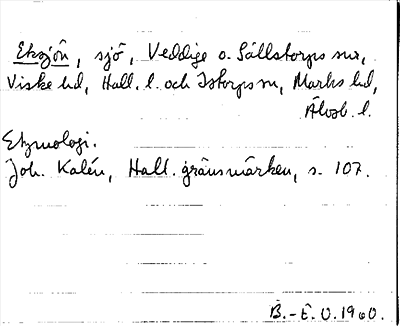 Eksjön, sjö, Veddige o. Sällstorps snr,
Viske hd, Hall. l. och Istorps sn, Marks hd,
Älvsb. l.
Etymologi.
Joh. Kalén, Hall. gränsmärken, s. 107.
B.-E. O. 1960.